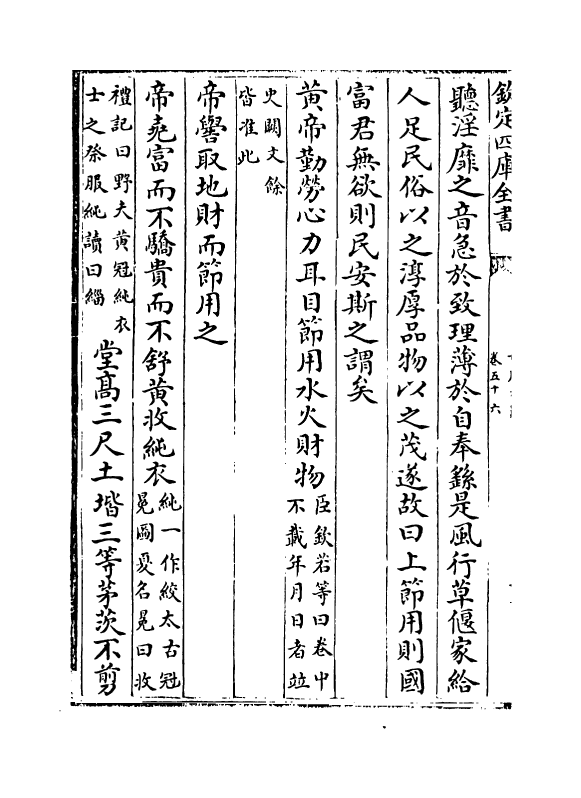 欽定四庫全書
卷五十六
聽淫靡之音急於致理薄於自奉繇是風行草偃家給
人足民俗以之淳厚品物以之茂遂故曰上節用則國
富君無欲則民安斯之謂矣
黄帝勤勞心力耳目節用水火財物臣欽若等曰卷中不載年月日者竝
史闕文餘皆准此
帝嚳取地財而節用之
帝堯富而不驕貴而不舒黄收純衣純一作絞太古冠冕圖夏名冕曰收
禮記曰野夫黄冠純衣士之祭服純讀曰緇堂髙三尺土堦三等茅茨不剪